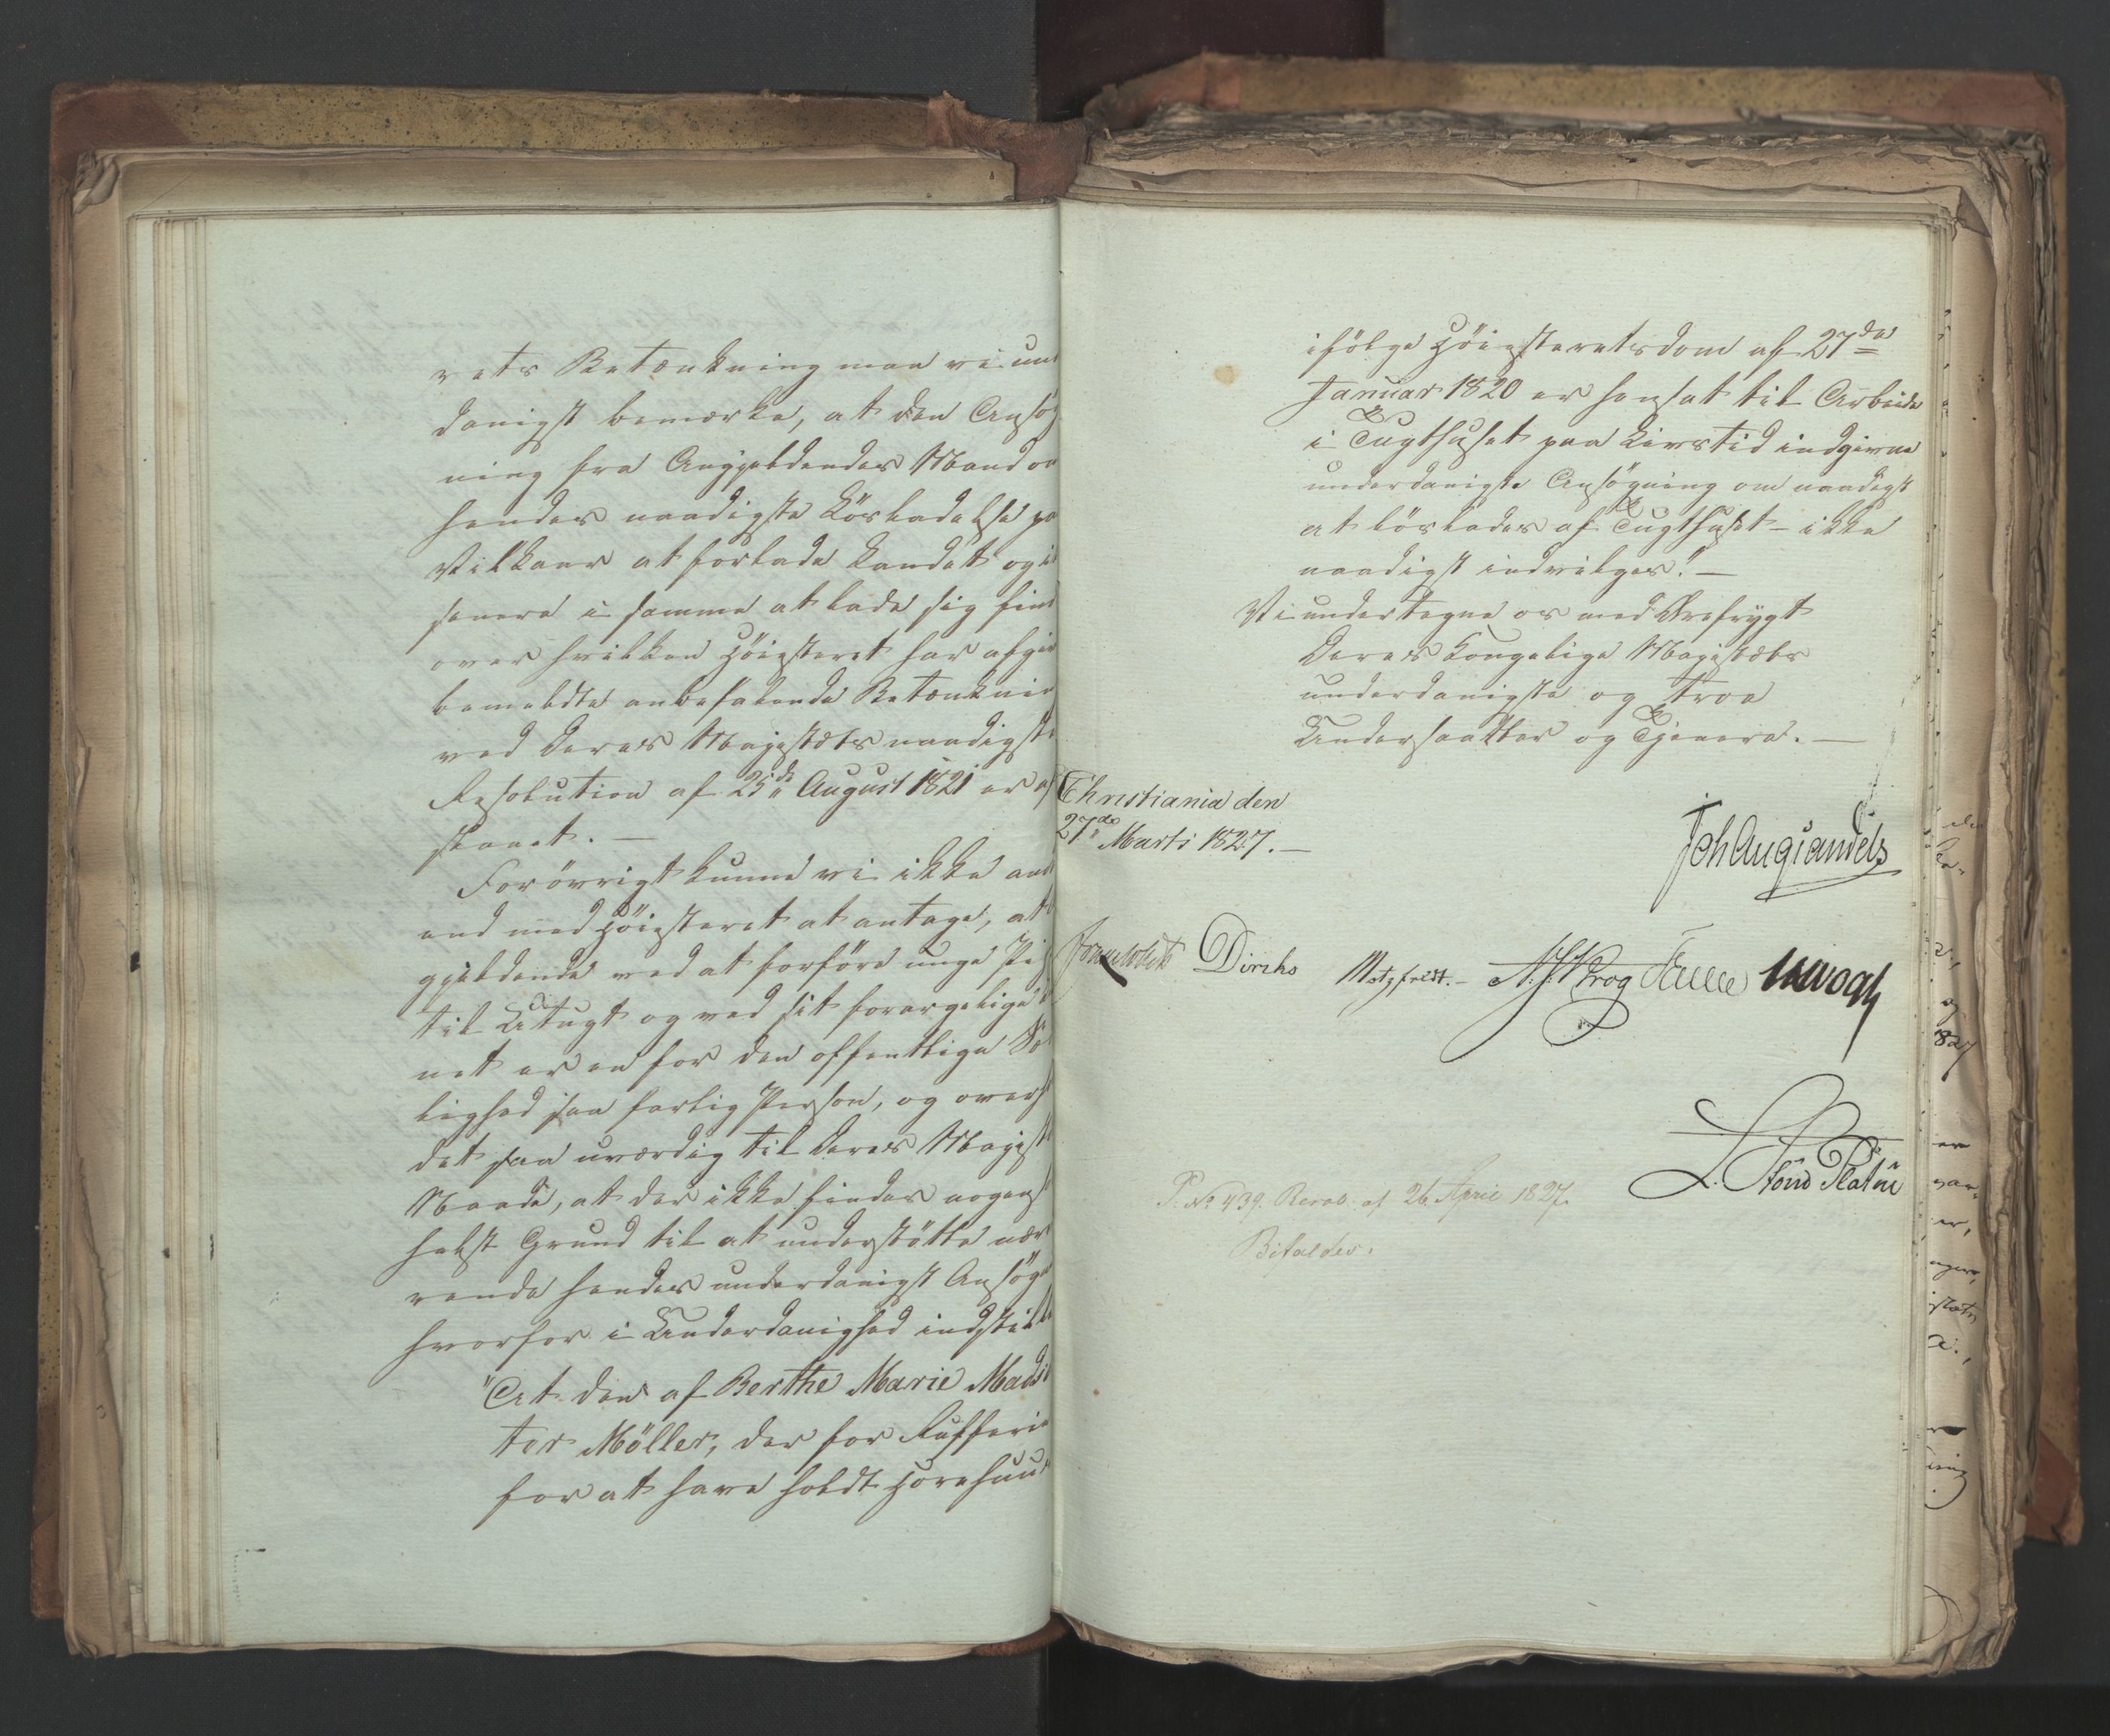 rets Betænkning maa vi un
danigst bemærke, at den Ansøg
ning fra Angjeldendes Mand om
hendes naadigste Løsladelse pa
Vilkaar at forlade Landet og i
senere i samme at lade sig find
over hvilken Höiesteret har afgiv
bemeldte anbefalende Betænknin
ved Deres Majestæts naadigste
Resolution af 25de August 1821 er af
slaaet. —
Forövrigt kunne vi ikke and
end med Höiesteret at antage, at
gjeldende ved at forföre unge Pig
til Utugt og ved sit forargelige
net er en for den offentlige Sæ
lighed saa farlig Person, og over
det saa uværdig til Deres Majestæ
Naade, at der ikke findes nogens
helst Grund til at understötte nær
rende hendes underdanigst Ansög
hvorfor i Underdanighed indstille
"At den af Berthe Marie Madsd
ter Möller, der for Rufferie
for at have holdt Horehuus
ifölge Höiesteretsdom af 27de
Januar 1820 er hensat til Arbeide
i Tugthuset paa Livstid indgivne
underdanigste Ansögning om naadigst
at löslades af Tugthuset – ikke
naadigst indvilges." —
Vi undertegne os med Ærefrygt
Deres Kongelige Majestæts
underdanigste og troe
Undersaatter og Tjenere. —
Christiania den
27de Marts 1827. —
Joh Aug Sandels
Sommerhielm Diriks Motzfeldt. – A. J. Krog Fasting JHVogt
L. Stoud Platou
P. No 439. Resol. af 26 April 1827.
Bifaldes.